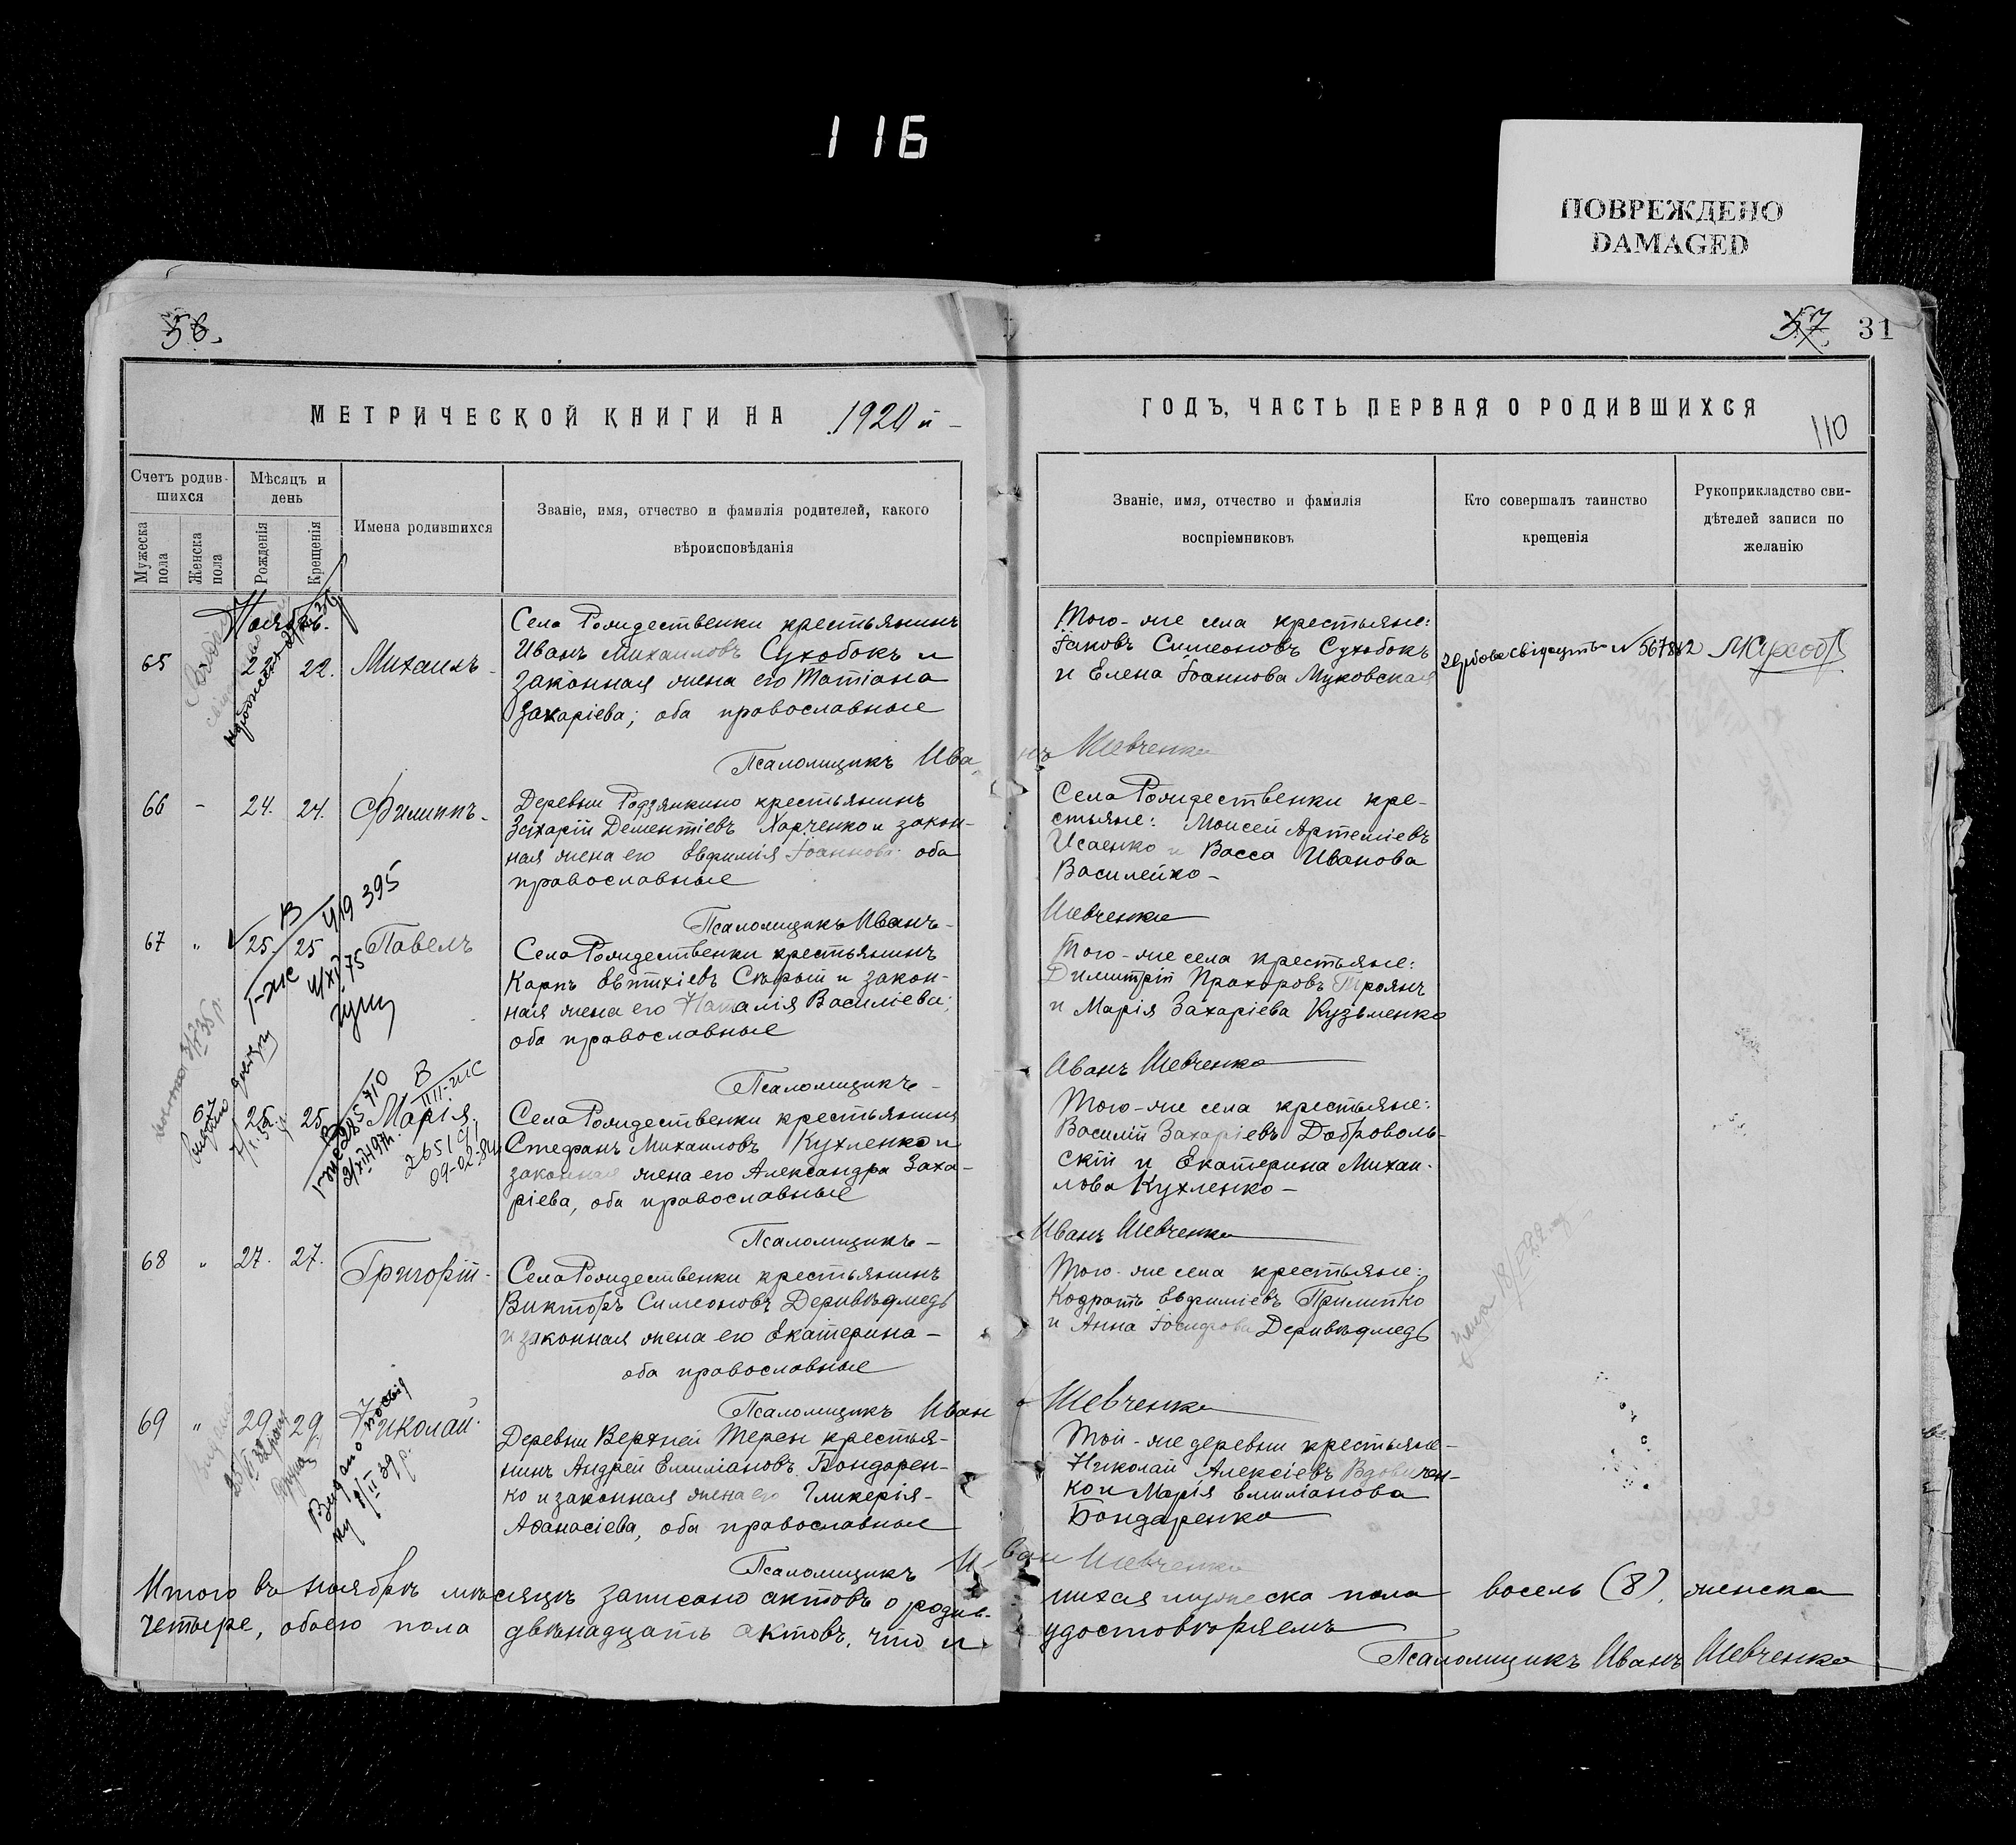 116
ПОВРЕЖДЕНО
DAMAGED
56.
МЕТРИЧЕСКОЙ КНИГИ НА 1920 й
Счетъ родив-
шихся
Мѣсяцъ и
день
Мужеска
пола
Женска
пола
Рожденія
Крещенія
Имена родившихся
Званіе, имя, отчество и фамилія родителей, какого
вѣроисповѣданія
Ноябрь.
65 22 22. Михаилъ
Села Рождественки крестьянинъ
Иванъ Михаиловъ Сухобокъ и
законная жена его Татіана
Захаріева; оба православные
Псаломщикъ Ива
66 - 24. 24. Филиппъ.
Деревни Родзянкино крестьянинъ
Захарій Дементіевъ Харченко и закон-
ная жена его Евфимія Іоаннова оба
православные
Псаломщикъ Иванъ-
В
419 395
67 " 25. 25 Павелъ
I-ЖС
75
Села Рождественки крестьянинъ
Карпъ Евтихіевъ Сѣрый и закон-
ная жена его Наталія Василіева;
оба православные
Псаломщикъ-
В
III-ЖС
67 25. 25. Марія.
09-02-84
Села Рождественки крестьянинъ
Стефанъ Михаиловъ Кухленко и
законная жена его Александра Заха-
ріева, оба православные
Псаломщикъ-
68 " 27. 27. Григорій-
Села Рождественки крестьянинъ
Викторъ Симеоновъ Деривѣдмедь
и законная жена его Екатерина-
оба православные
Псаломщикъ Иван
69 " 29. 29. Николай.
Видано
8/II 39 р.
Деревни Верхней Терен крестья-
нинъ Андрей Емиліановъ Бондарен-
ко и законная жена его Гликерія-
Афанасіева, оба православные
Псаломщикъ И
Итого въ ноябрѣ мѣсяцѣ записано актовъ о родив-
четыре, обоего пола двѣнадцать актовъ, что и
57 31
ГОДЪ, ЧАСТЬ ПЕРВАЯ О РОДИВШИХСЯ
110
Званіе, имя, отчество и фамилія
воспріемниковъ
Кто совершалъ таинство
крещенія
Рукоприкладство сви-
дѣтелей записи по
желанію
Того-же села крестьяне:
Іаковъ Симеоновъ Сухобокъ
и Елена Іоаннова Муковская
нъ Шевченко
Села Рождественки кре-
стьяне: Моисей Артеміевъ
Исаенко и Васса Иванова
Василейко-
Шевченко
Того-же села крестьяне:
Димитрій Прохоровъ Троянъ
и Марія Захаріева Кузьменко
Иванъ Шевченко
Того-же села крестьяне:
Василій Захаріевъ Доброволь-
скій и Екатерина Михаи-
лова Кухленко-
Иванъ Шевченко
Того-же села крестьяне:
Кодратъ Евфиміевъ Прилипко
и Анна Іосифова Деривѣдмедь
Шевченко
Той-же деревни крестьяне-
Николай Алексіевъ Вдовичен-
ко и Марія Емиліанова
Бондаренко
ван Шевченко
шихся мужеска пола восемь (8), женска
удостовѣряемъ
Псаломщикъ Иванъ Шевченко